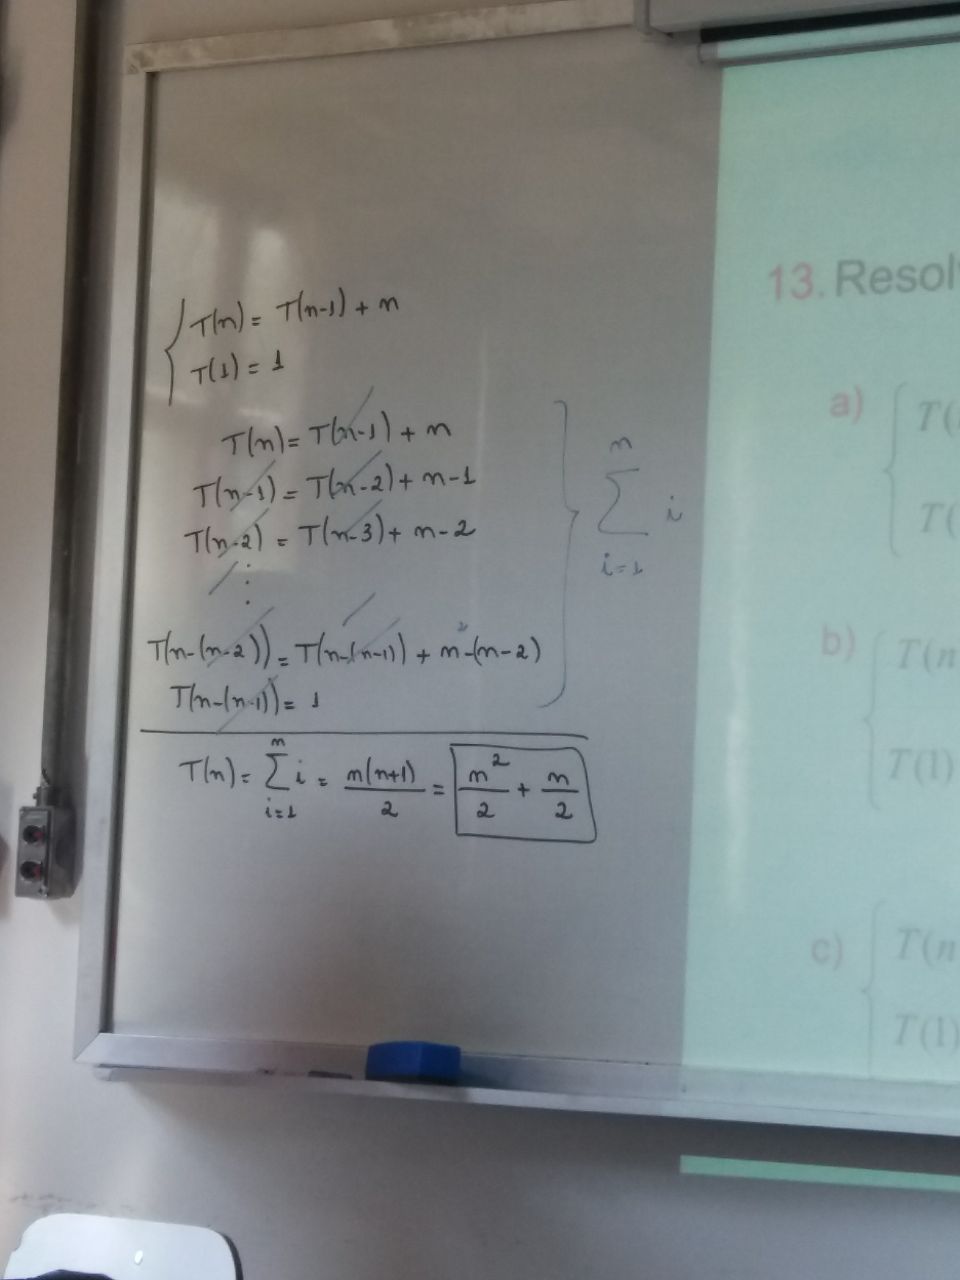 T(n) = T(n-1) + n
T(1) = 1
T(n) = T(n-1) + n
T(n-1) = T(n-2) + n-1
T(n-2) = T(n-3) + n-2
⋮
T(n-(n-2)) = T(n-(n-1)) + n-(n-2)
T(n-(n-1)) = 1
n
∑ i
i=1
T(n) = ∑_{i=1}^{n} i = n(n+1)/2 = n²/2 + n/2
13. Resol
a) T(
T(
b) T(n
T(1)
c) T(n
T(1)